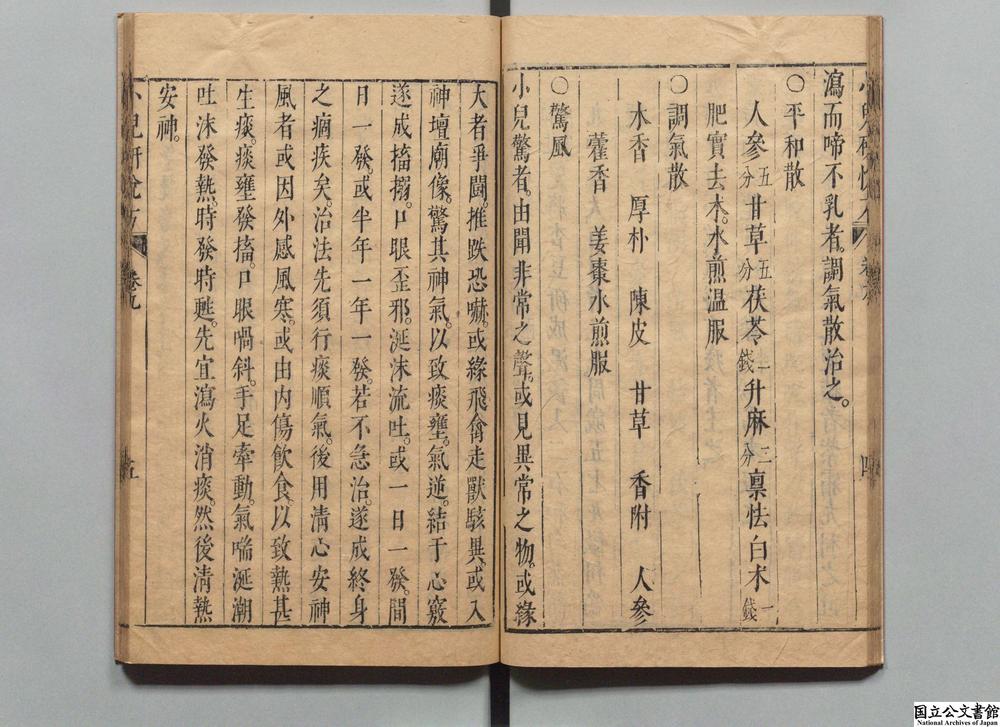 瀉而啼不乳者。調氣散治之。
○平和散
人參五分甘草五分茯苓一錢升麻二分禀怯白术一錢
肥實去术。水煎温服
○調氣散
木香 厚朴 陳皮 甘草 香附 人參
藿香入姜棗水煎服
○驚風
小兒驚者。由聞非常之聲。或見異常之物。或緣
大者爭鬪。推跌恐嚇。或緣飛禽走獸駭異。或入
神壇廟像。驚其神氣。以致痰壅。氣逆。結于心竅
遂成搐搦。口眼歪邪。涎沫流吐。或一日一發。間
日一發。或半年一年一發。若不急治。遂成終身
之痼疾矣治法先須行痰順氣。後用清心安神
風者或因外感風寒。或由內傷飲食。以致熱甚
生痰。痰壅發搐。口眼喎斜。手足牽動。氣喘涎潮
吐沫發熱。時發時甦。先宜瀉火消痰。然後清熱
安神。
卷九
五
国立公文書館
National Archives of Japan